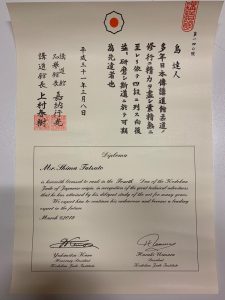 島 達人
多年日本傳講道館柔道ノ
修行ニ精力ヲ盡シ業精熟ニ
至レリ依テ四段ニ列ス向後
益々研磨シ斯道ニ於テ可期
爲先達者也
平成三十一年三月八日
講道館
名譽館長 嘉納行光
講道館長 上村春樹
Diploma
Mr. Shima Tatsuto
is herewith licensed to rank in the Fourth Dan of the Kodokan
Judo of Japanese origin, in recognition of the great technical adroitness
that he has attained by his diligent study of the art for many years.
We expect him to continue his endeavors and become a leading
expert in the future.
March 8, 2019
Yukimitsu Kano
Honorary President
Kodokan Judo Institute
Haruki Uemura
President
Kodokan Judo Institute